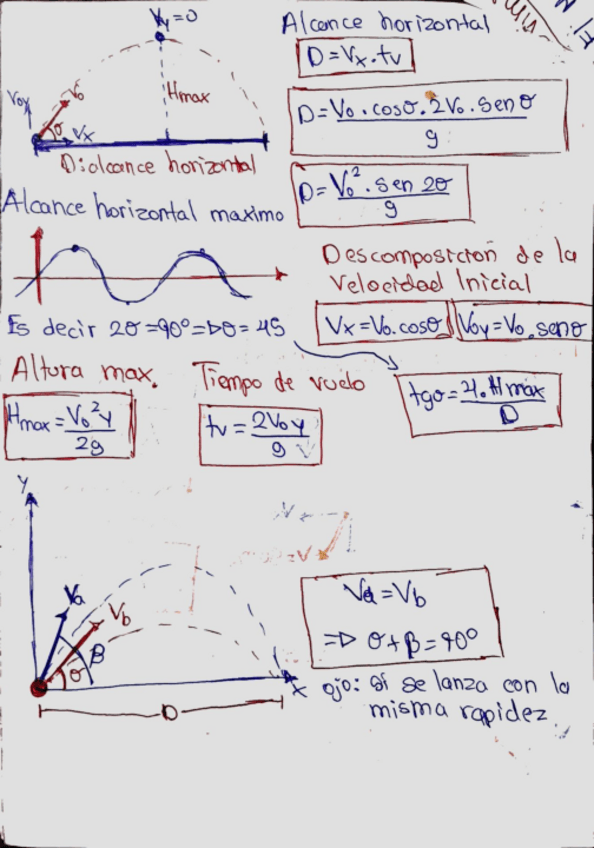 Vy=0
Voy
Vo
θ
Vx
Hmax
D:alcance horizontal
Alcance horizontal
D=Vx.tv
D=Vo.cosθ.2Vo.senθ
g
D=Vo².sen 2θ
g
Alcance horizontal maximo
Es decir 2θ=90°=>θ=45
Descomposicion de la
Velocidad Inicial
Vx=Vo.cosθ
Voy=Vo.senθ
Altura max.
Hmax=Vo²y
2g
Tiempo de vuelo
tv=2Voy
g
tgθ=4.Hmax
D
Y
Va
Vb
β
θ
X
D
Va=Vb
=>θ+β=90°
ojo: si se lanza con la
misma rapidez